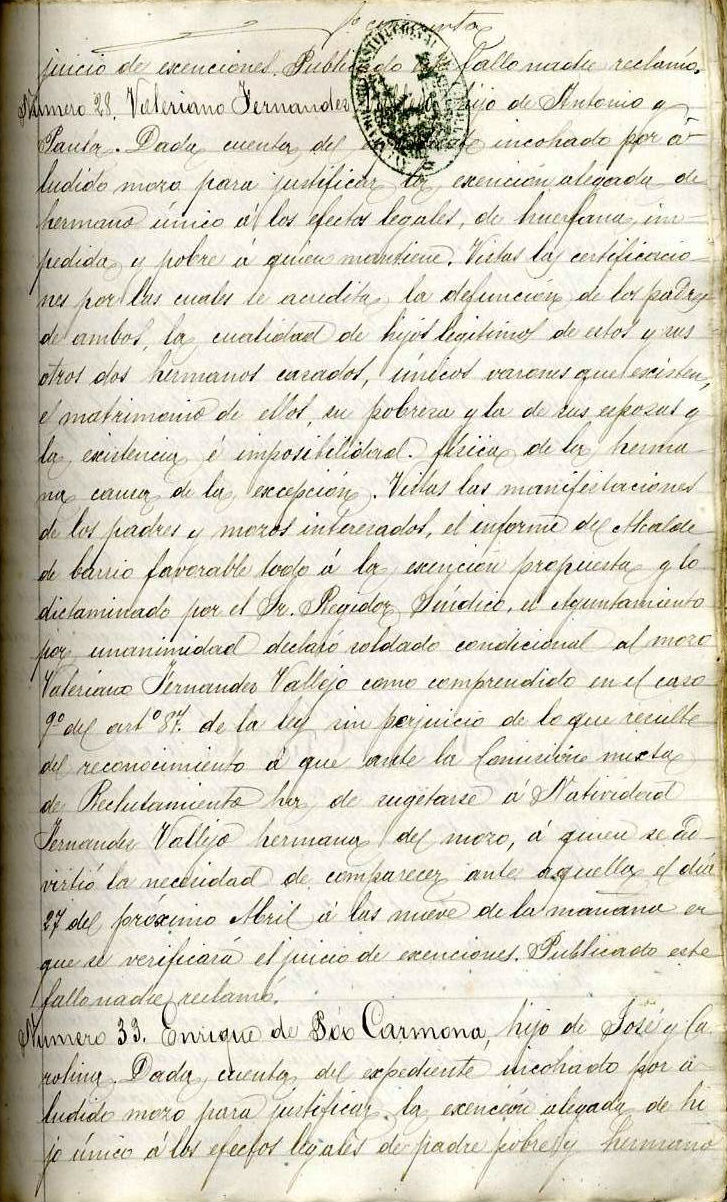 juicio de exenciones. Publicado este fallo nadie reclamó.
Número 28. Valeriano Fernandez Vallejo, hijo de Antonio y
Paula. Dada cuenta del incohado por á-
ludido mozo para justificar la exención alegada de
hermano único á los efectos legales, de huerfana im-
pedida y pobre á quien mantiene. Vistas las certificacio-
nes por las cuales se acredita la defuncion de los padres
de ambos, la cualidad de hijos legitimos de estos y sus
otros dos hermanos casados, únicos varones que existen,
el matrimonio de ellos, su pobreza y la de sus esposas y
la existencia é imposibilidad física de la herma-
na causa de la excepción. Vistas las manifestaciones
de los padres y mozos interesados, el informe del Alcalde
de barrio favorable todo á la exención propuesta y lo
dictaminado por el Sr. Regidor Síndico, el Ayuntamiento
por unanimidad declaró soldado condicional al mozo
Valeriano Fernandez Vallejo como comprendido en el caso
9º del artº 87. de la ley sin perjuicio de lo que resulte
del reconocimiento á que ante la Comisión mixta
de Reclutamiento ha de sugetarse á Natividad
Fernandez Vallejo hermana del mozo, á quien se ad-
virtió la necesidad de comparecer ante aquella el día
27 del próximo Abril á las nueve de la mañana en
que se verificará el juicio de exenciones. Publicado este
fallo nadie reclamó.
Número 33. Enrique de Carmona, hijo de José y Ca-
rolina. Dada cuenta del expediente incohado por á-
ludido mozo para justificar la exención alegada de hi-
jo único á los efectos legales de padre pobre y hermano